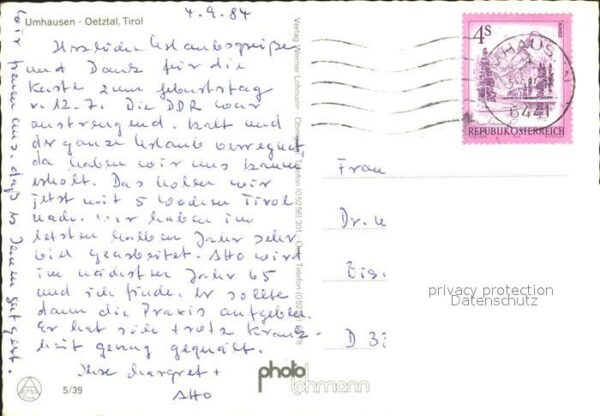 Umhausen - Oetztal, Tirol
4.9.84
Herzliche Urlaubsgrüße
und Dank für die
Karte zum Geburtstag
v. 12.7. Die DDR war
anstrengend. Kalt und
der ganze Urlaub verregnet
da haben wir uns kaum
erholt. Das holen wir
jetzt mit 5 Wochen Tirol
nach. Wir haben im
letzten halben Jahr sehr
viel gearbeitet. Otto wird
im nächsten Jahr 65
und ich finde, er sollte
dann die Praxis aufgeben.
Er hat sich trotz Krank-
heit genug gequält.
Ihre Margret +
Otto
Wir freuen uns, daß es Ihnen gut geht.
Verlag Werner Lohmann
4S
REPUBLIK ÖSTERREICH
UMHAUSEN
6441
Frau
Dr.
D 33
privacy protection
Datenschutz
5/39
photo
lohmann